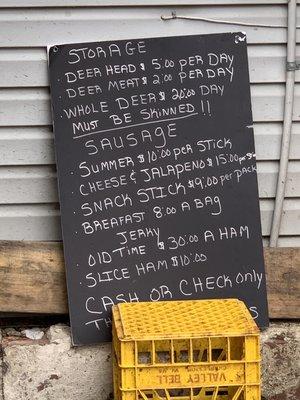 STORAGE
. DEER HEAD $5.00 PER DAY
. DEER MEAT $2.00 PER DAY
. WHOLE DEER $20.00 DAY
MUST BE SKINNED !!
SAUSAGE
. SUMMER $10.00 PER STICK
. CHEESE & JALAPENO $15.00
. SNACK STICK $9.00 PER PACK
. BREAKFAST 8.00 A BAG
JERKY
OLD TIME $30.00 A HAM
. SLICE HAM $10.00
CASH OR CHECK ONLY
VALLEY BELL